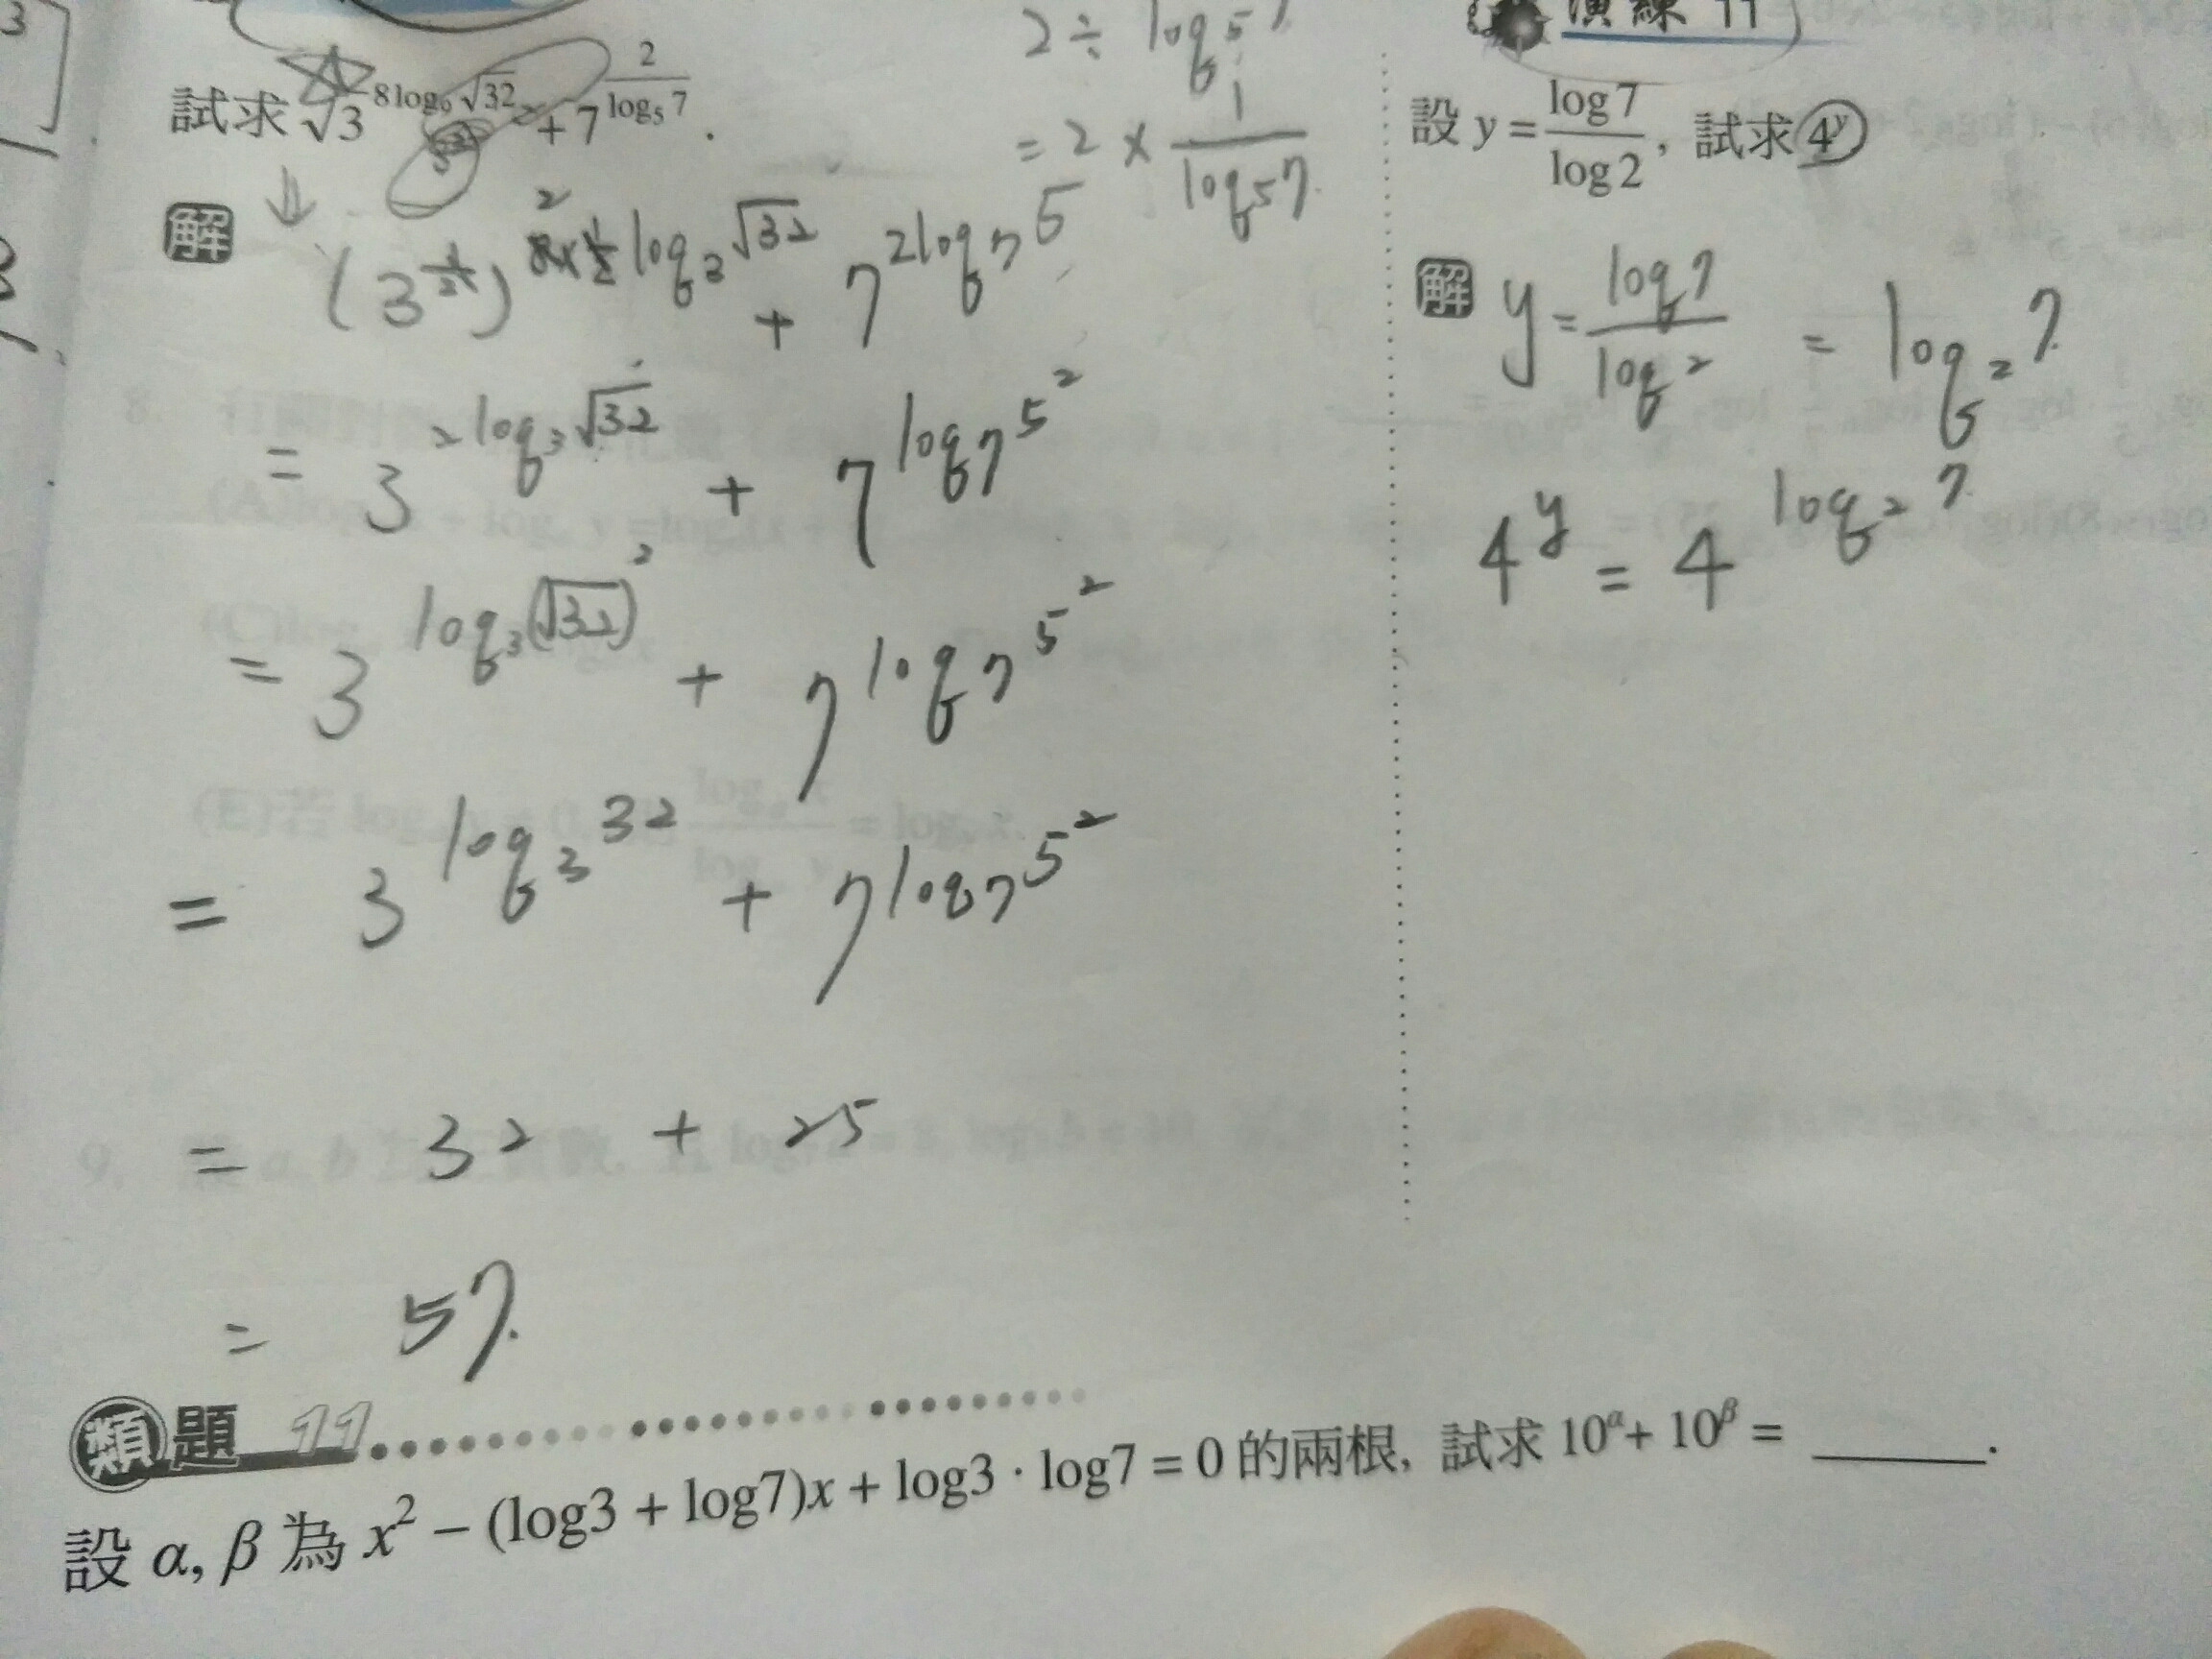 試求 √3^(8log₉√32) + 7^(2/log₅7).
2 ÷ log₅7
= 2 × 1/log₅7
解
(3^(1/2))^(8×1/2 log₃√32) + 7^(2log₇5)
= 3^(2log₃√32) + 7^(log₇5²)
= 3^(log₃(√32)²) + 7^(log₇5²)
= 3^(log₃32) + 7^(log₇5²)
= 32 + 25
= 57.
演練 11
設 y = log7/log2, 試求 4^y
解 y = log7/log2 = log₂7
4^y = 4^(log₂7)
類題 11
設 α, β 為 x² − (log3 + log7)x + log3 · log7 = 0 的兩根, 試求 10^α + 10^β = ______.